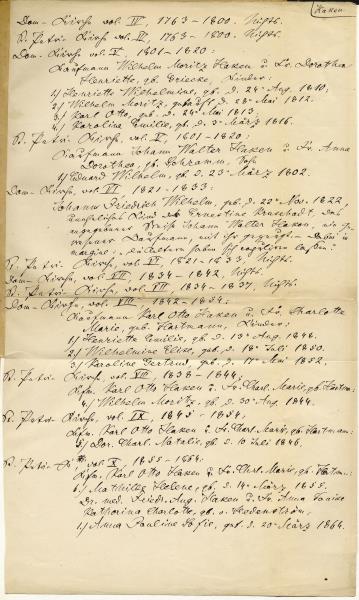 Haken
Dom-Kirche vol. IV, 1763-1800. Nichts.
St. Petri-Kirche vol. IV, 1763-1800. Nichts.
Dom-Kirche vol. V, 1801-1820:
Kaufmann Wilhelm Moritz Haken u. Fr. Dorothea
Henriette, gb. Kinder:
1) Henriette Wilhelmine, gb. d. 24 Aug. 1810;
2) Wilhelm Moritz, d. 28 Mai 1812.
3) Karl Otto, gb. d. 24 Mai 1813.
4) Karoline Emilie, gb. d. 3 März 1816.
St. Petri-Kirche, vol. V, 1801-1820:
Kaufmann Johann Walter Haken u. Fr. Anna
Dorothea, gb. Sohn
1) Eduard Wilhelm, gb. d. 23 März 1802.
Dom-Kirche, vol. VI 1821-1833:
Johann Friedrich Wilhelm, gb. d. 22 Nov. 1822,
Kind der Ernestine das
Johann Walter Haken,
Kaufmann, in
margine:
St. Petri-Kirche, vol. VI 1821-1833, Nichts.
Dom-Kirche, vol. VII, 1834-1842, Nichts.
St. Petri-Kirche, vol. VII, 1834-1837, Nichts.
Dom-Kirche, vol. VIII, 1842-1854:
Kaufmann Karl Otto Haken u. Fr. Charlotte
Marie, geb. Hartmann, Kinder:
1) Henriette Emilie, gb. d. 1848.
2) Wilhelmine Elise, gb. d. Juli 1850.
3) Karoline Gertrud, gb. d. 17 Mai 1852.
St. Petri-Kirche, vol. VIII 1838-1844:
Kfm. Karl Otto Haken u. Fr. Charl. Marie, gb. Hartm.:
4) Wilhelm Moritz, gb. d. 30 Aug. 1844.
St. Petri-Kirche, vol. IX, 1845-1854,
Kfm. Karl Otto Haken u. Fr. Charl. Marie, gb. Hartman:
5) Dor. Charl. Natalie, gb. d. 10 Juli 1846.
St. Petri-K. vol. X 1855-1864.
Kfm. Karl Otto Haken u. Fr. Charl. Marie, gb. Hartm.:
6) Mathilde Helene, gb. d. 14 März 1855.
Dr. med. Friedr. Aug. Haken u. Fr. Anna
Katharina Charlotte, gb. v.
1) Anna Pauline Sofie, gb. d. 20 März 1864.